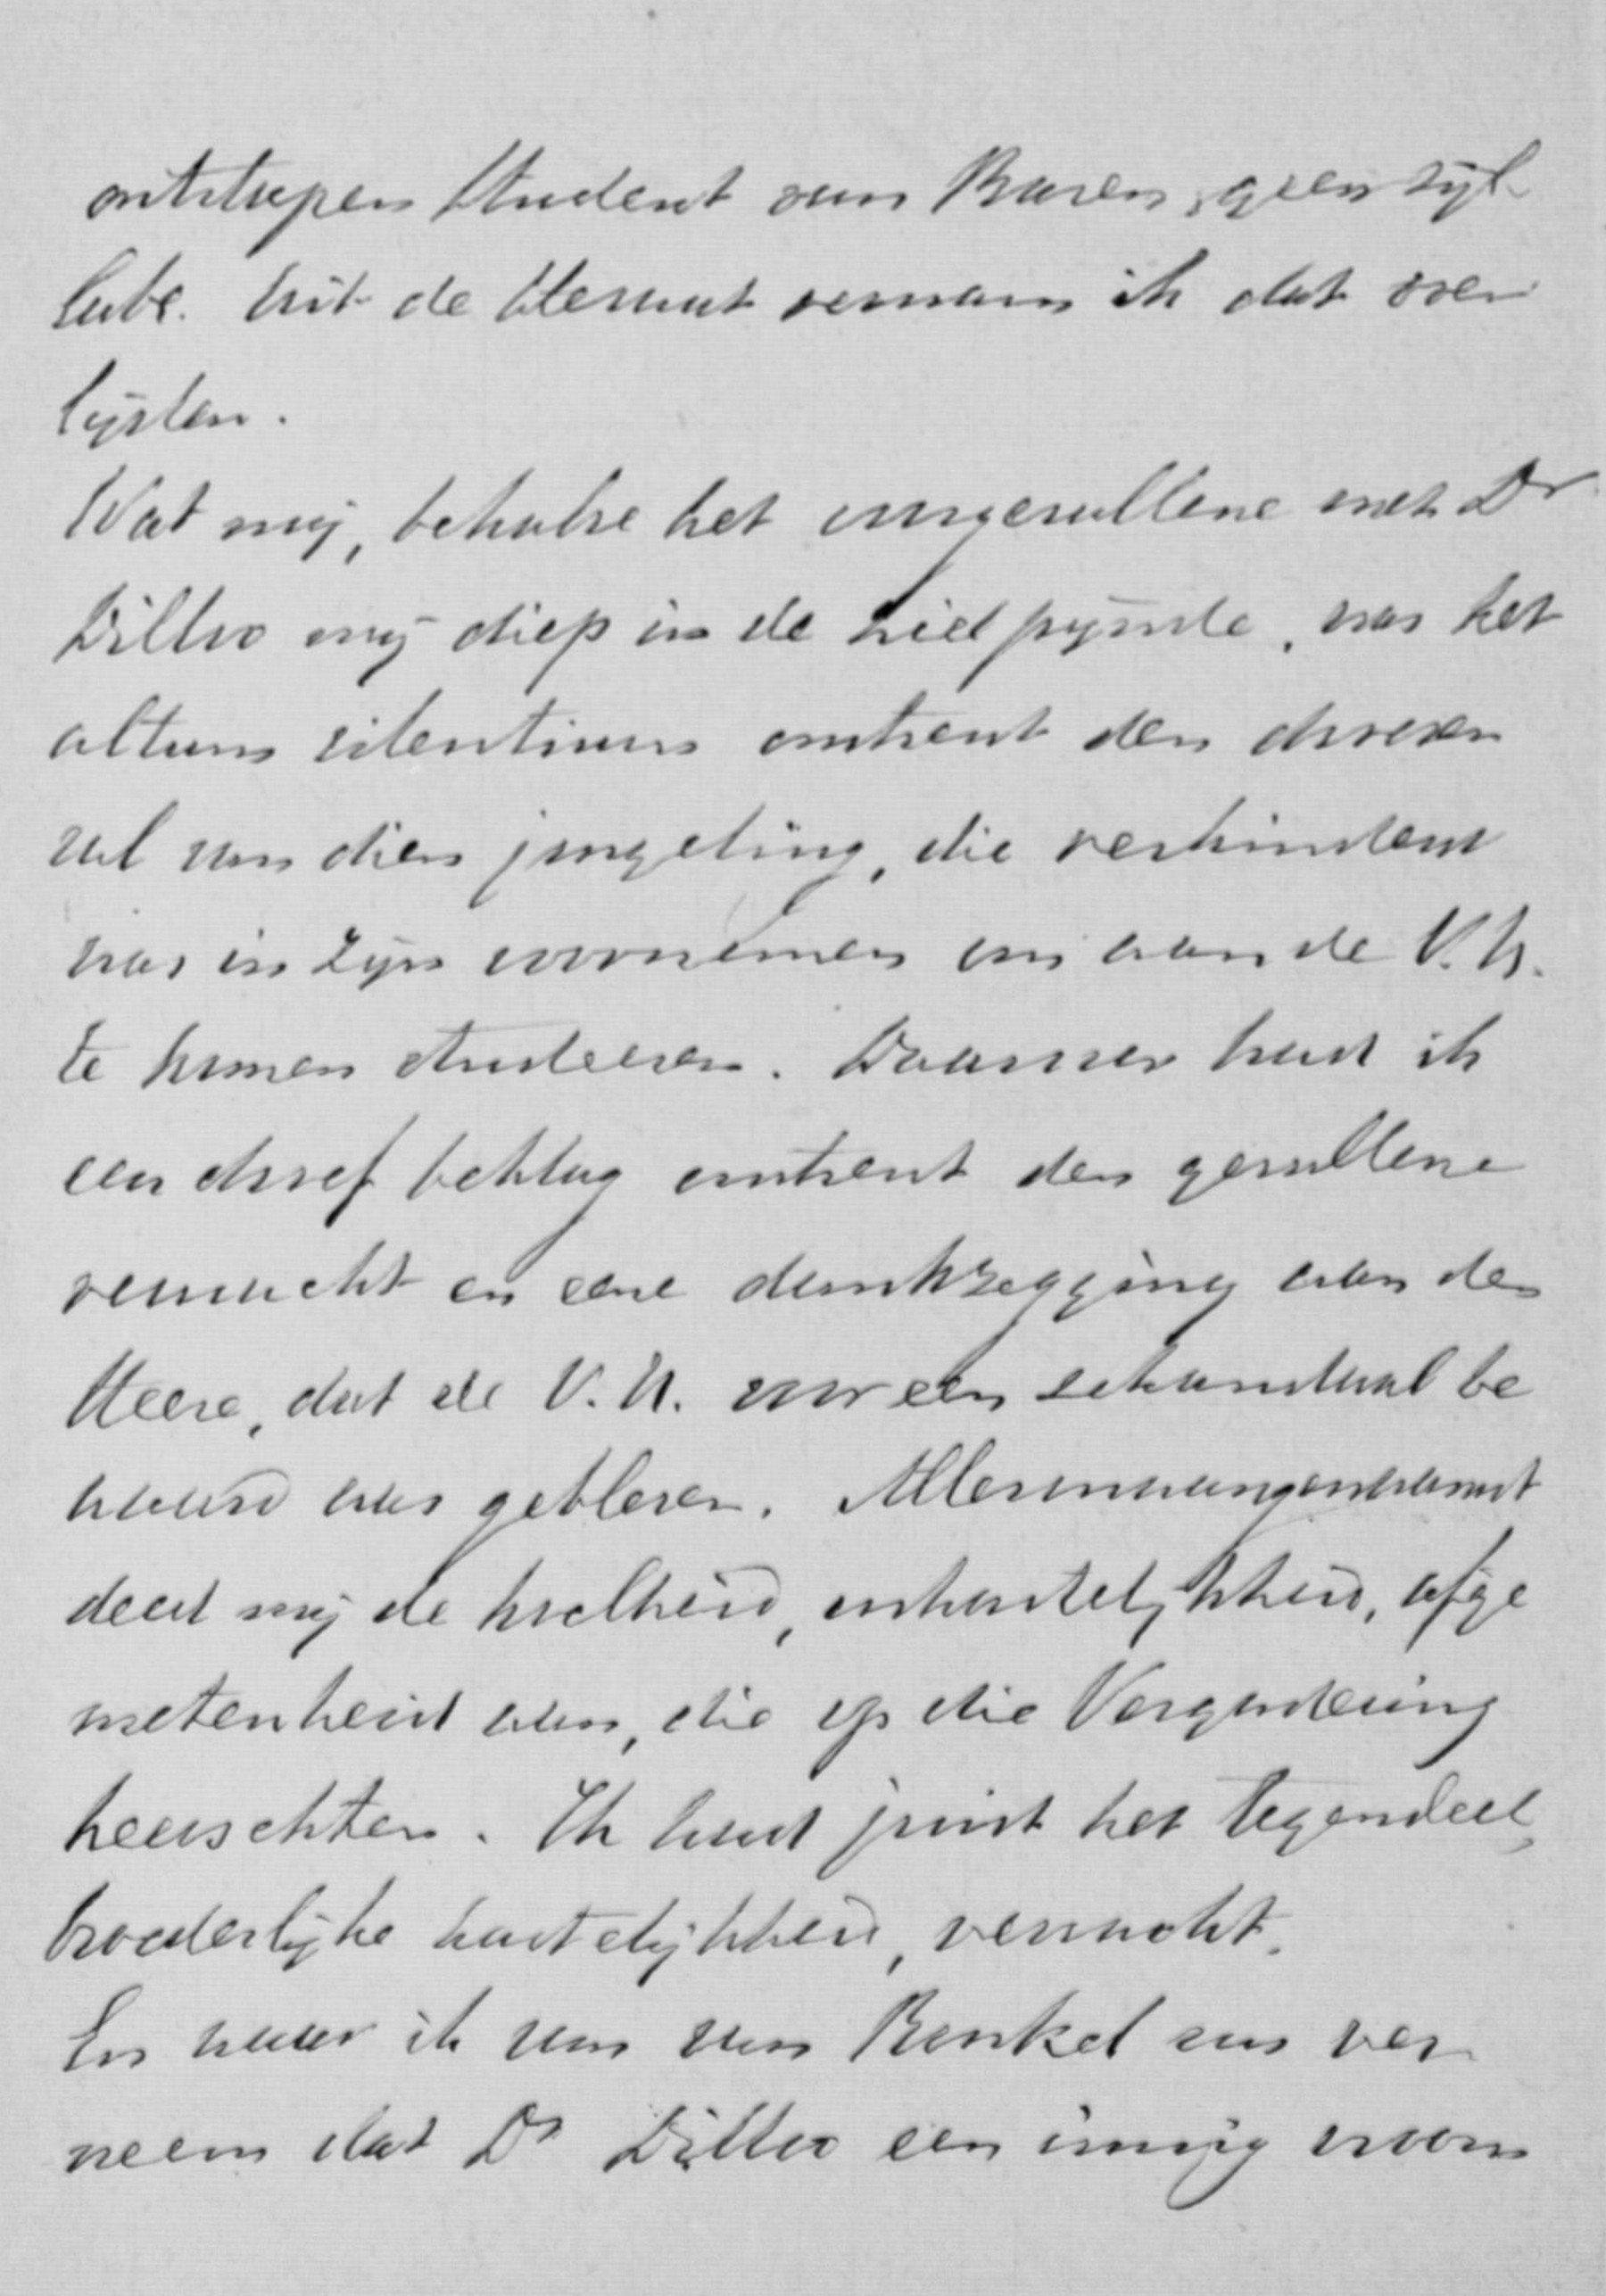 ontslapen Student van Buren, geen syl
labe. Uit de Heraut vernam ik dat over
lijden.
Wat mij, behalve het voorgevallene met Dr
Dilloo mij diep in de ziel pijnde, was het
altum silentium omtrent den droeven
val van dien jongeling, die verhinderd
was in zijn voornemen om aan de V.U.
te komen studeeren. Daarover had ik
een droef beklag omtrent den gevallene
verwacht en eene dankzegging aan den
Heere, dat de V.U. voor een schandaal be
waard was gebleven. Alleronaangenaamst
deed mij de koelheid, onhartelijkheid, afge
metenheid aan, die op die Vergadering
heerschten. Ik had juist het tegendeel,
broederlijke hartelijkheid, verwacht.
En waar ik nu van Ronkel
neem dat Dr Dilloo een innig vroom